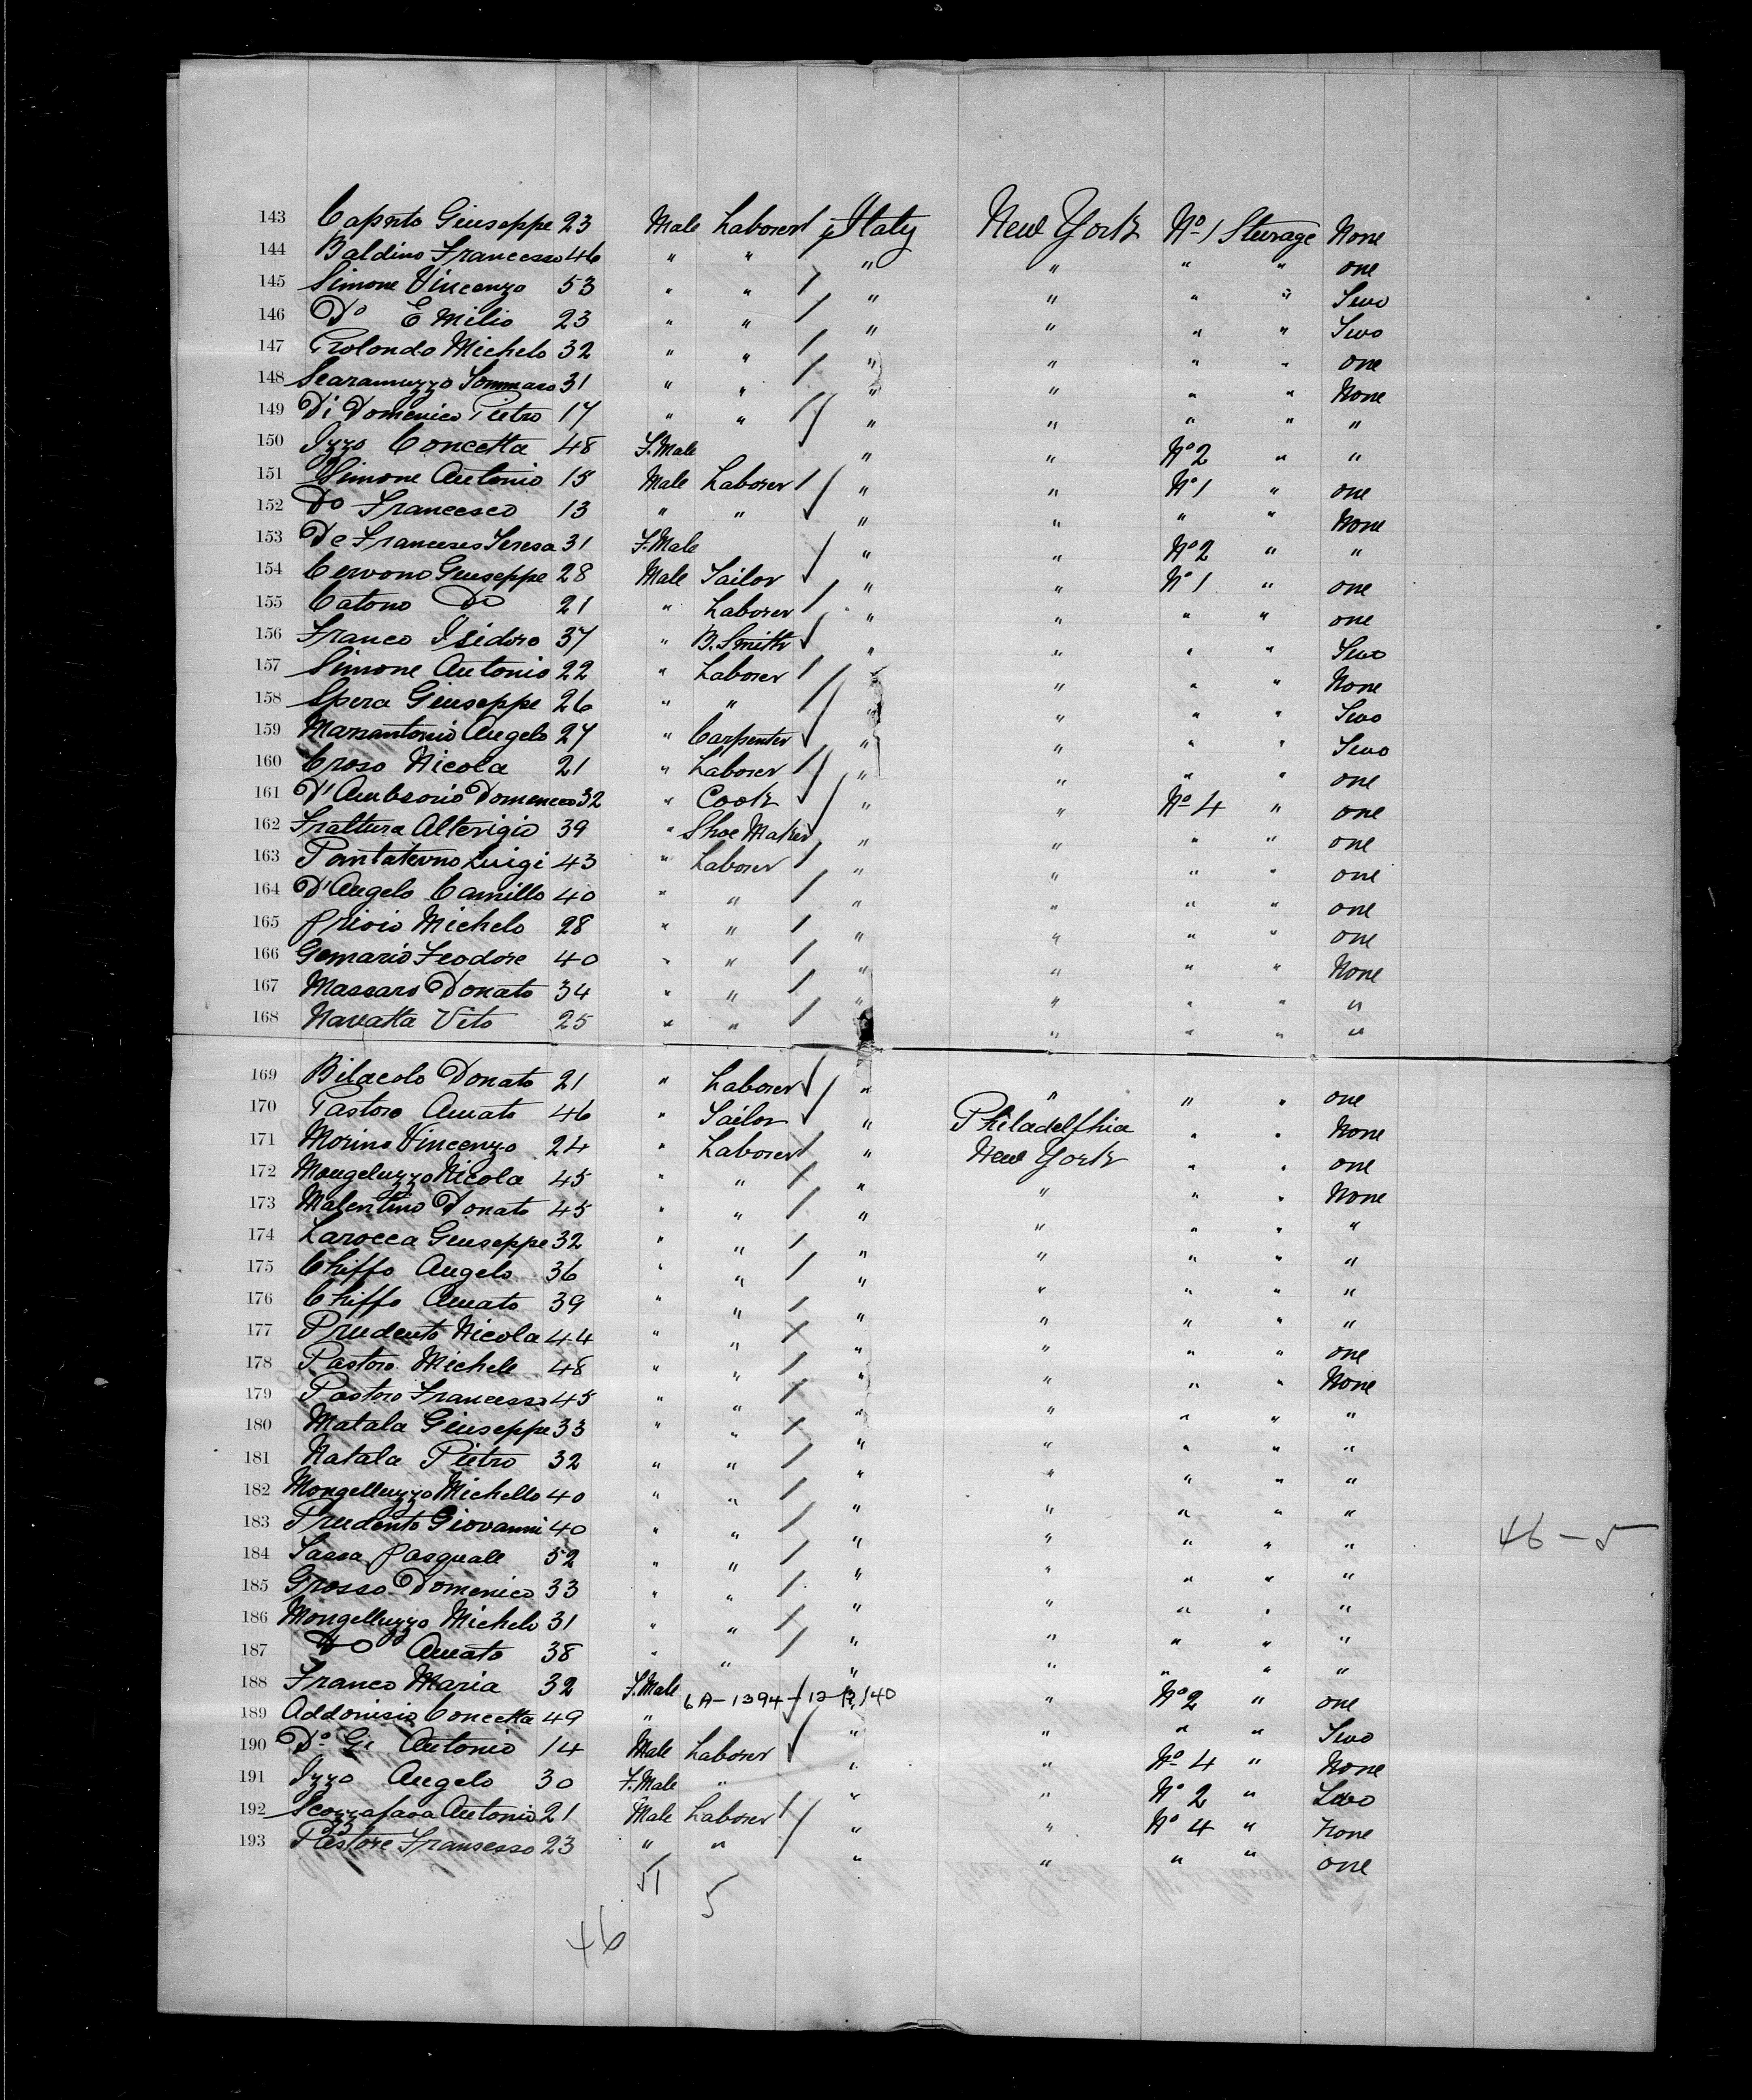 143 Caputo Giuseppe 23 Male Laborer Italy New York No 1 Steerage None
144 Baldino Francesco 46 " " " " " " one
145 Simone Vincenzo 53 " " " " " " Two
146 Do Emilio 23 " " " " " " Two
147 Rolondo Michelo 32 " " " " " " one
148 Scaramuzzo Tommaso 31 " " " " " " None
149 Di Domenico Pietro 17 " " " " " " "
150 Izzo Concetta 48 F.Male " " No 2 " "
151 Simone Antonio 15 Male Laborer " " No 1 " one
152 Do Francesco 13 " " " " " " None
153 De Franceses Teresa 31 F.Male " " No 2 " "
154 Cervono Giuseppe 28 Male Tailor " " No 1 " one
155 Catono Do 21 " Laborer " " " " one
156 Franco Isidoro 37 " B. Smith " " " " Two
157 Simone Antonio 22 " Laborer " " " None
158 Spera Giuseppe 26 " " " " " " Two
159 Marsantonio Angelo 27 " Carpenter " " " " Two
160 Croso Nicola 21 " Laborer " " " " one
161 D'Ambsorio Domenico 32 " Cook " " No 4 " one
162 Frattura Alterigio 39 " Shoe Maker " " " " one
163 Pontaterno Luigi 43 " Laborer " " " " one
164 D'Angelo Camillo 40 " " " " " " one
165 Michelo 28 " " " " " " one
166 Gemario Feodore 40 " " " " " " None
167 Massaro Donato 34 " " " " " " "
168 Navatta Vito 25 " " " " " "
169 Bilacolo Donato 21 " Laborer " " " " one
170 Pastoro Amato 46 " Tailor " Philadelfhia " " None
171 Morino Vincenzo 24 " Laborer " New York " " one
172 Mongeluzzo Nicola 45 " " " " " " None
173 Malentino Donato 45 " " " " " " "
174 Larocca Giuseppe 32 " " " " " " "
175 Chiffo Angelo 36 " " " " " " "
176 Chiffo Amato 39 " " " " " " "
177 Prudento Nicola 44 " " " " " " one
178 Pastoro Michele 48 " " " " " " None
179 Pastoro Francesso 45 " " " " " " "
180 Matala Giuseppe 33 " " " " " " "
181 Natala Pietro 32 " " " " " " "
182 Mongelluzzo Michello 40 " " " " " " "
183 Prudento Giovanni 40 " " " " " " " 46 - 5
184 Sassa Pasquale 52 " " " " " " "
185 Grosso Domenico 33 " " " " " " "
186 Mongelluzzo Michelo 31 " " " " " " "
187 Do Amato 38 " " " " " " "
188 Franco Maria 32 F.Male 6A-1394- 12 /40 " No 2 " one
189 Addonisio Concetta 49 " " " " " Two
190 Do Gi Antonio 14 Male Laborer " " No 4 " None
191 Izzo Angelo 30 F.Male " " " No 2 " Two
192 Scozzafava Antonio 21 Male Laborer " " No 4 " None
193 Pastore Fransesso 23 " " " " " " one
51 5
46